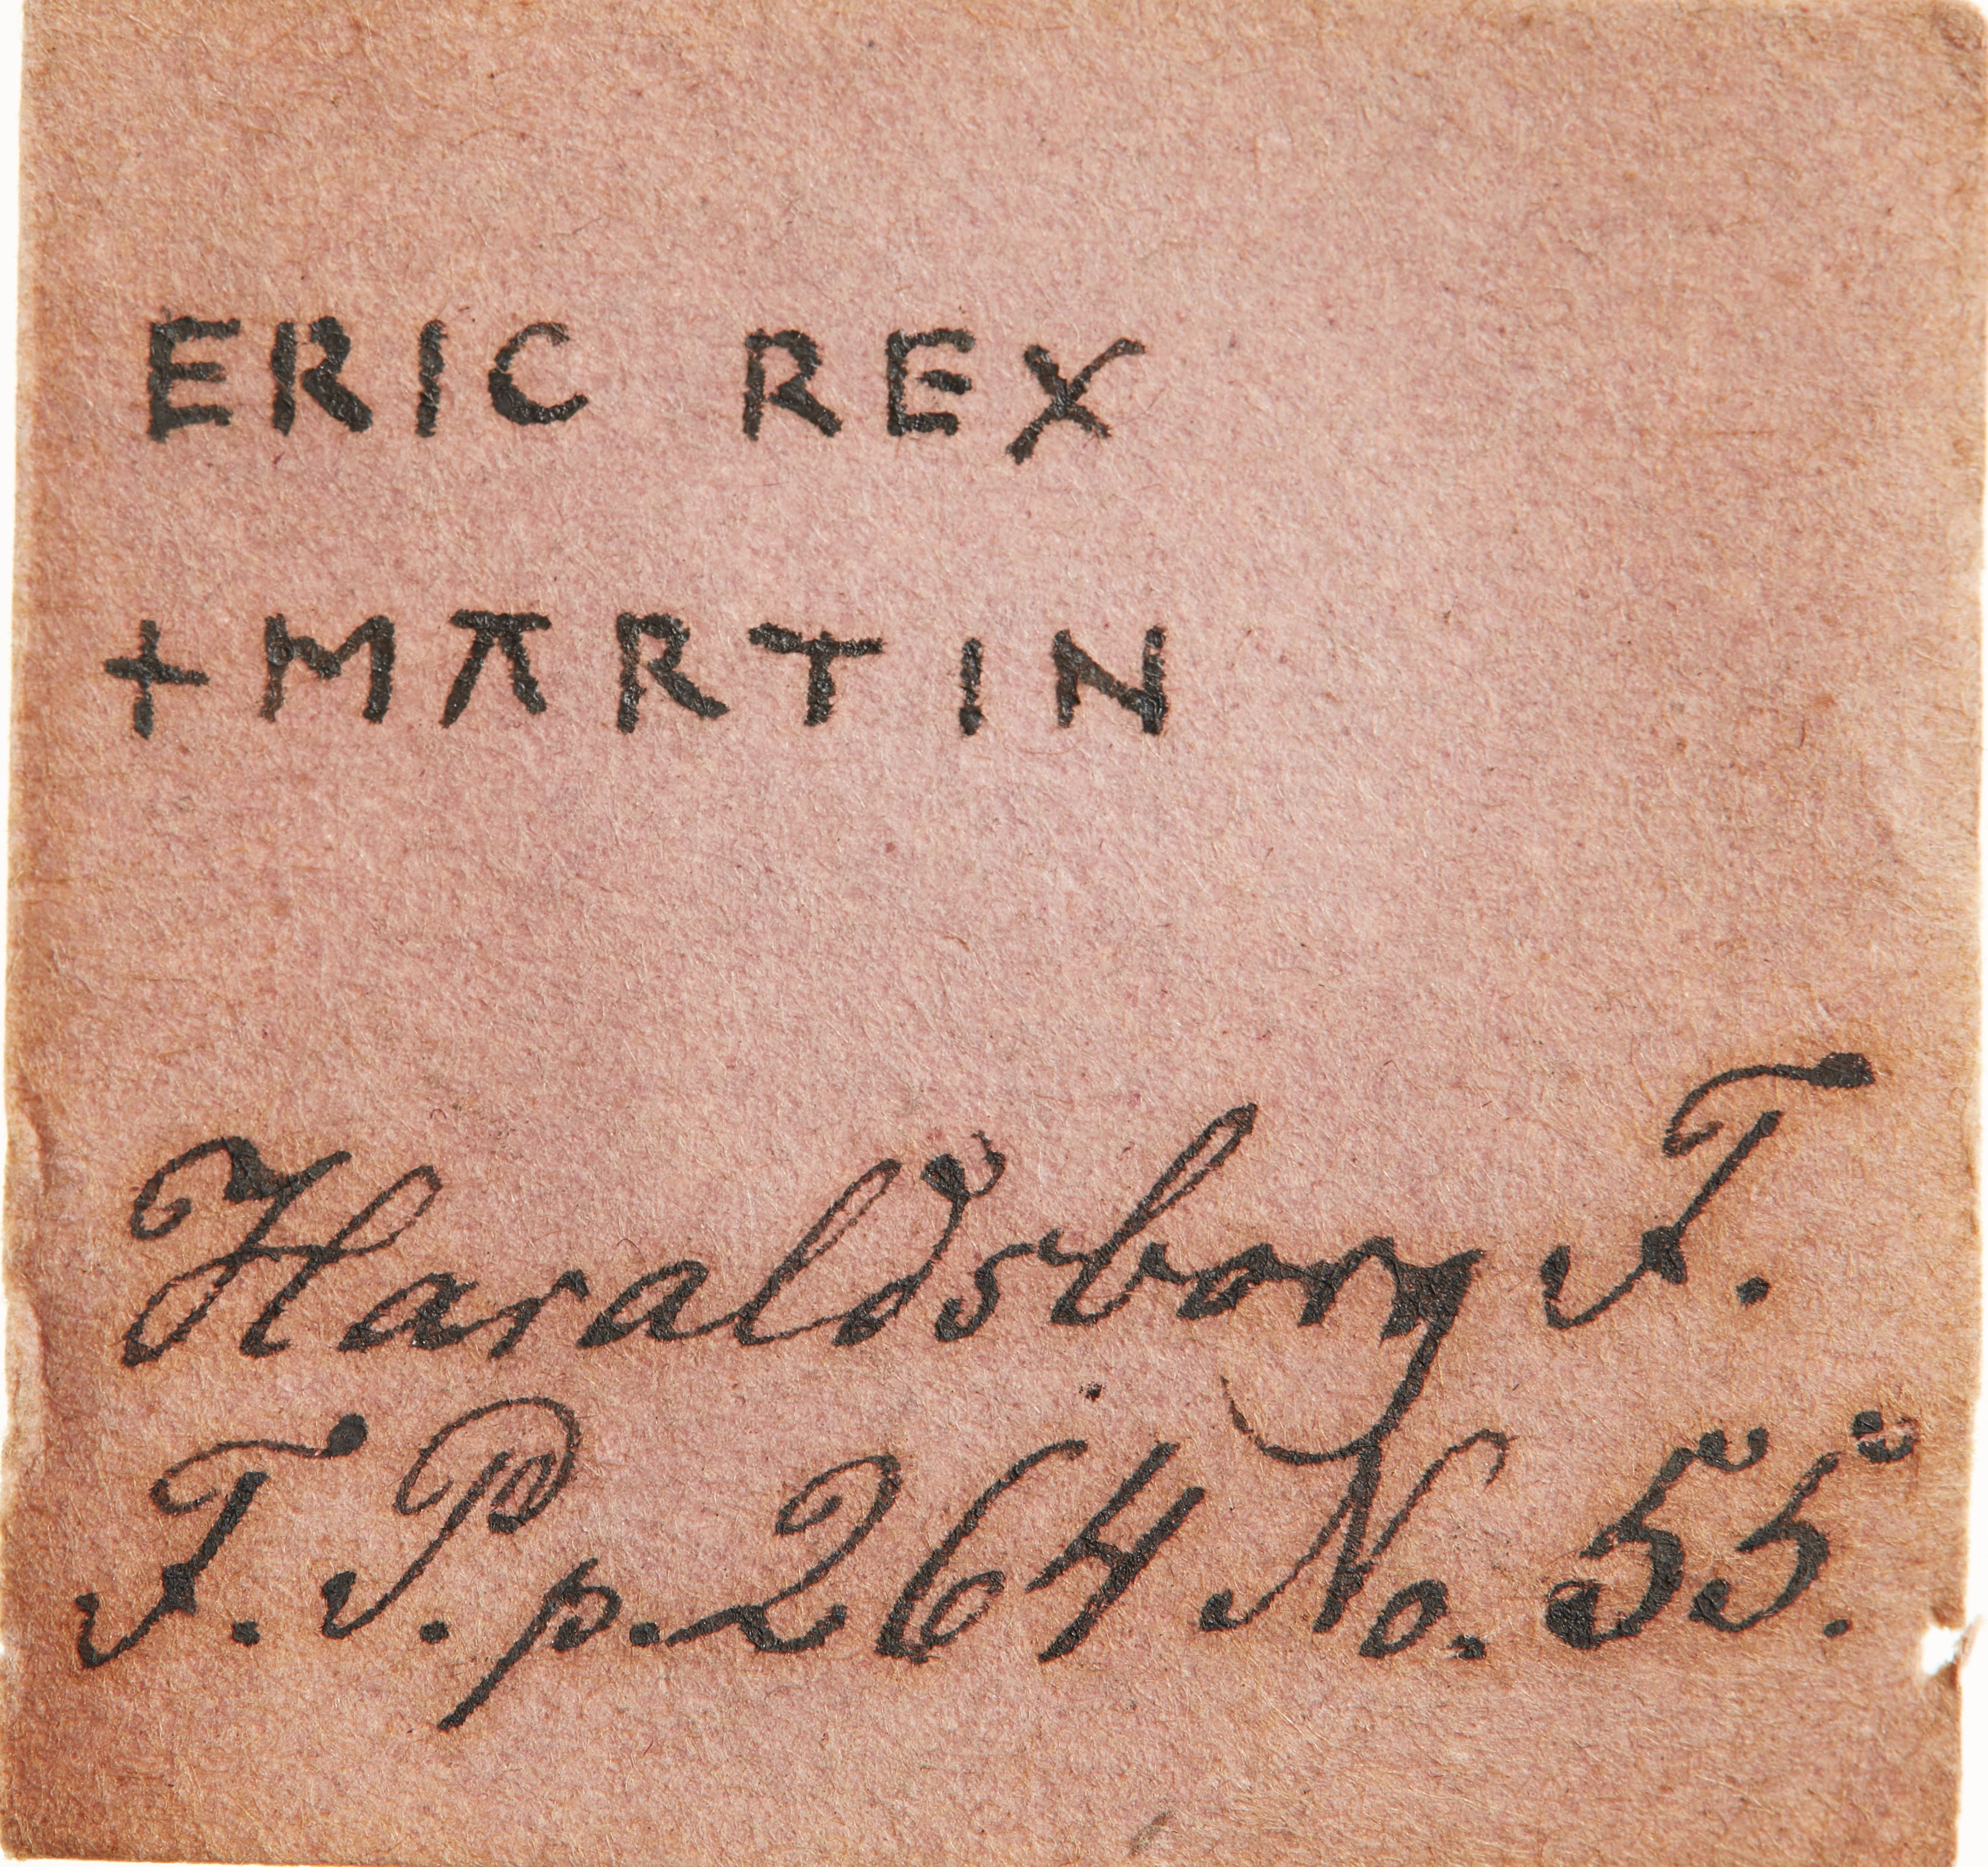 ERIC REX
+MARTIN
Haraldsborg F.
T. P. p. 264 No. 55.